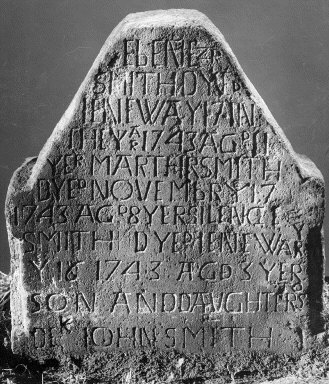 EBENEZR
SMITH DYED
IENEWAY 17 IN
THE YAR 1743 AGD 11
YER MARTHER SMITH
DYED NOVEMBR YE 17
1743 AGD 8 YERS ILENCE
SMITH DYED IENEWAR
Y 16 1743 AGD 3 YER
SON AND DAUGHTERS
OF JOHN SMITH